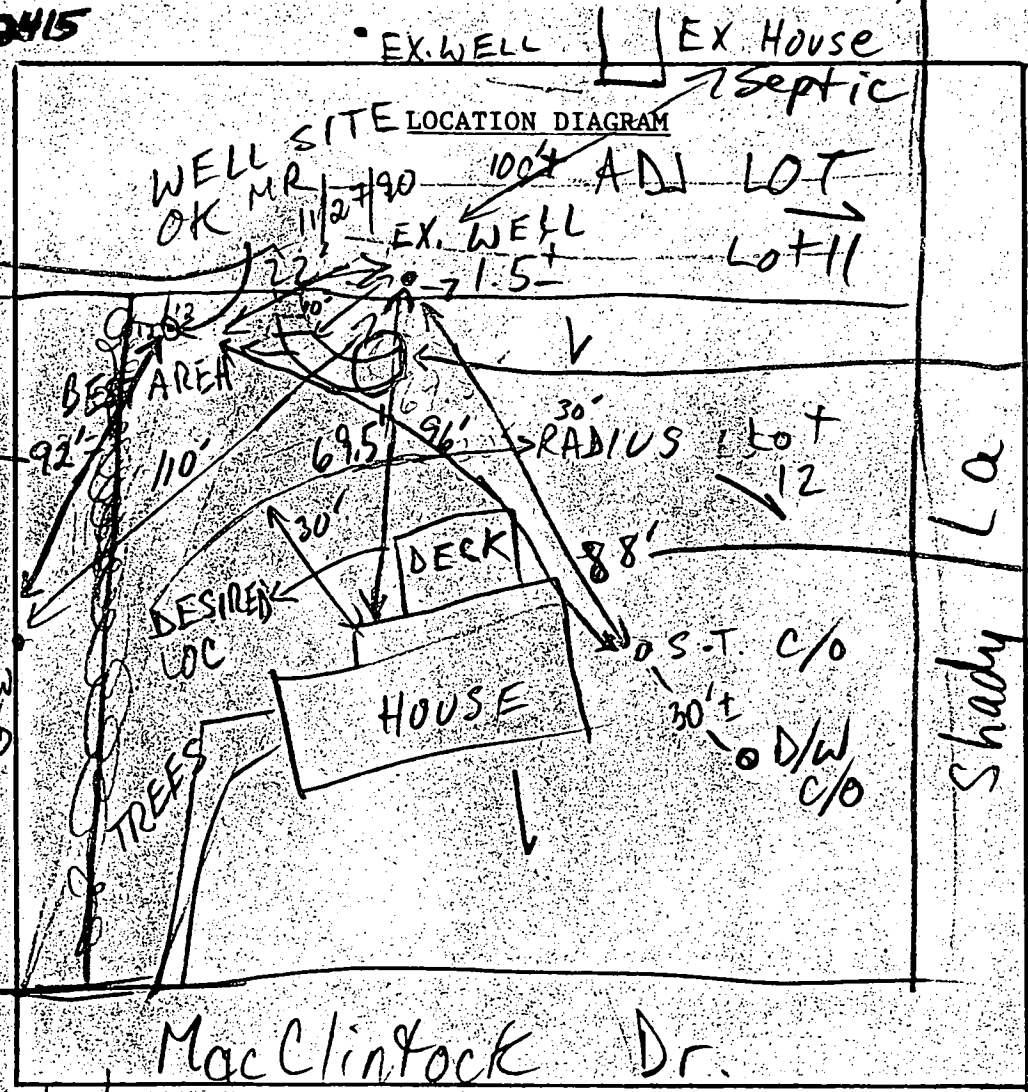 EX. WELL
EX. House
Septic
LOCATION DIAGRAM
WELL SITE
OK MR 11/27/90
100'±
ADJ LOT
Lot 11
EX. WELL
22'
1.5±
10'
12
BEST AREA
92'
110'
69.5'
96'
30'
RADIUS
Lot
12
30'
DECK
88'
DESIRED
LOC
S.T. C/O
HOUSE
30'±
D/W
C/O
TREES
Shady La
MacClintock Dr.